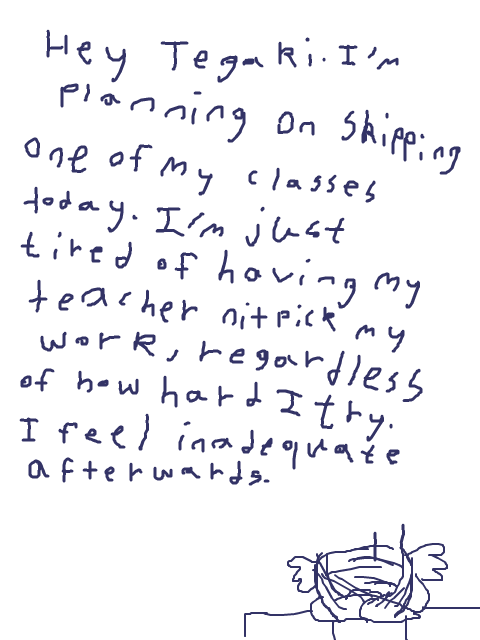 Hey Tegaki. I'm
planning on skipping
one of my classes
today. I'm just
tired of having my
teacher nitpick my
work, regardless
of how hard I try.
I feel inadequate
afterwards.